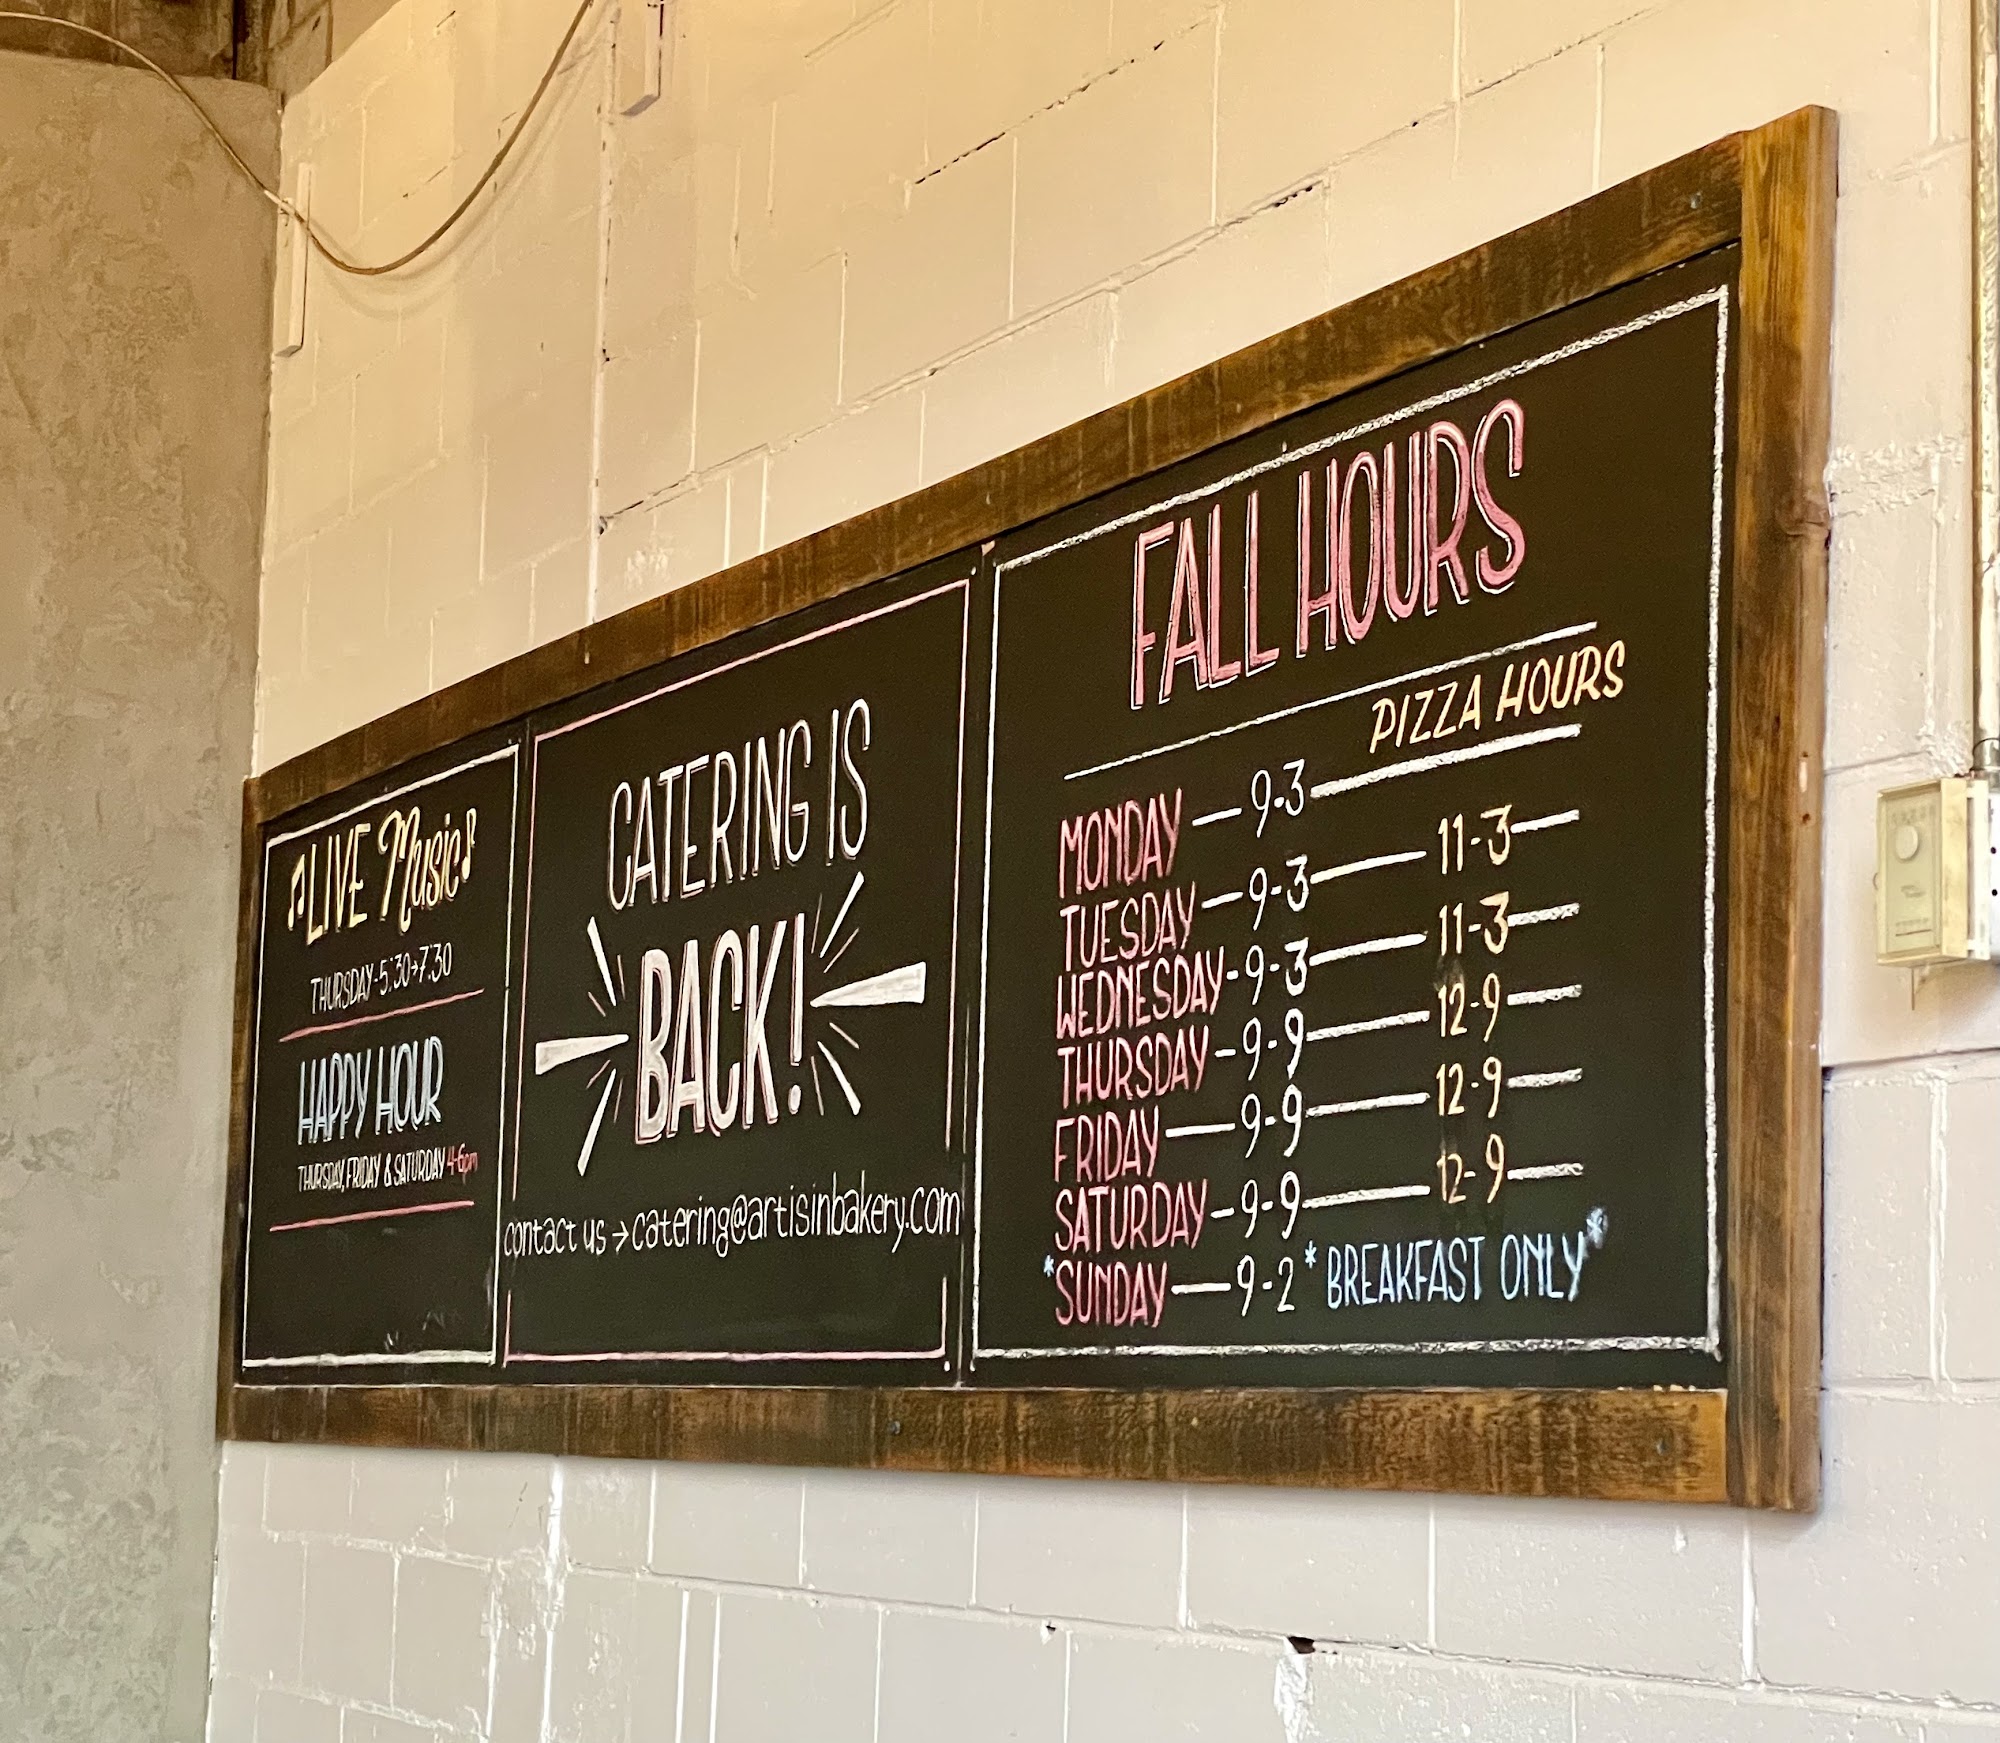 LIVE Music
THURSDAY-5:30→7:30
HAPPY HOUR
THURSDAY, FRIDAY & SATURDAY 4-6pm
CATERING IS
BACK!
contact us → catering@artisinbakery.com
FALL HOURS
PIZZA HOURS
MONDAY — 9-3
TUESDAY — 9-3 — 11-3
WEDNESDAY - 9-3 — 11-3
THURSDAY - 9-9 — 12-9
FRIDAY — 9-9 — 12-9
SATURDAY - 9-9 — 12-9
*SUNDAY — 9-2 *BREAKFAST ONLY*